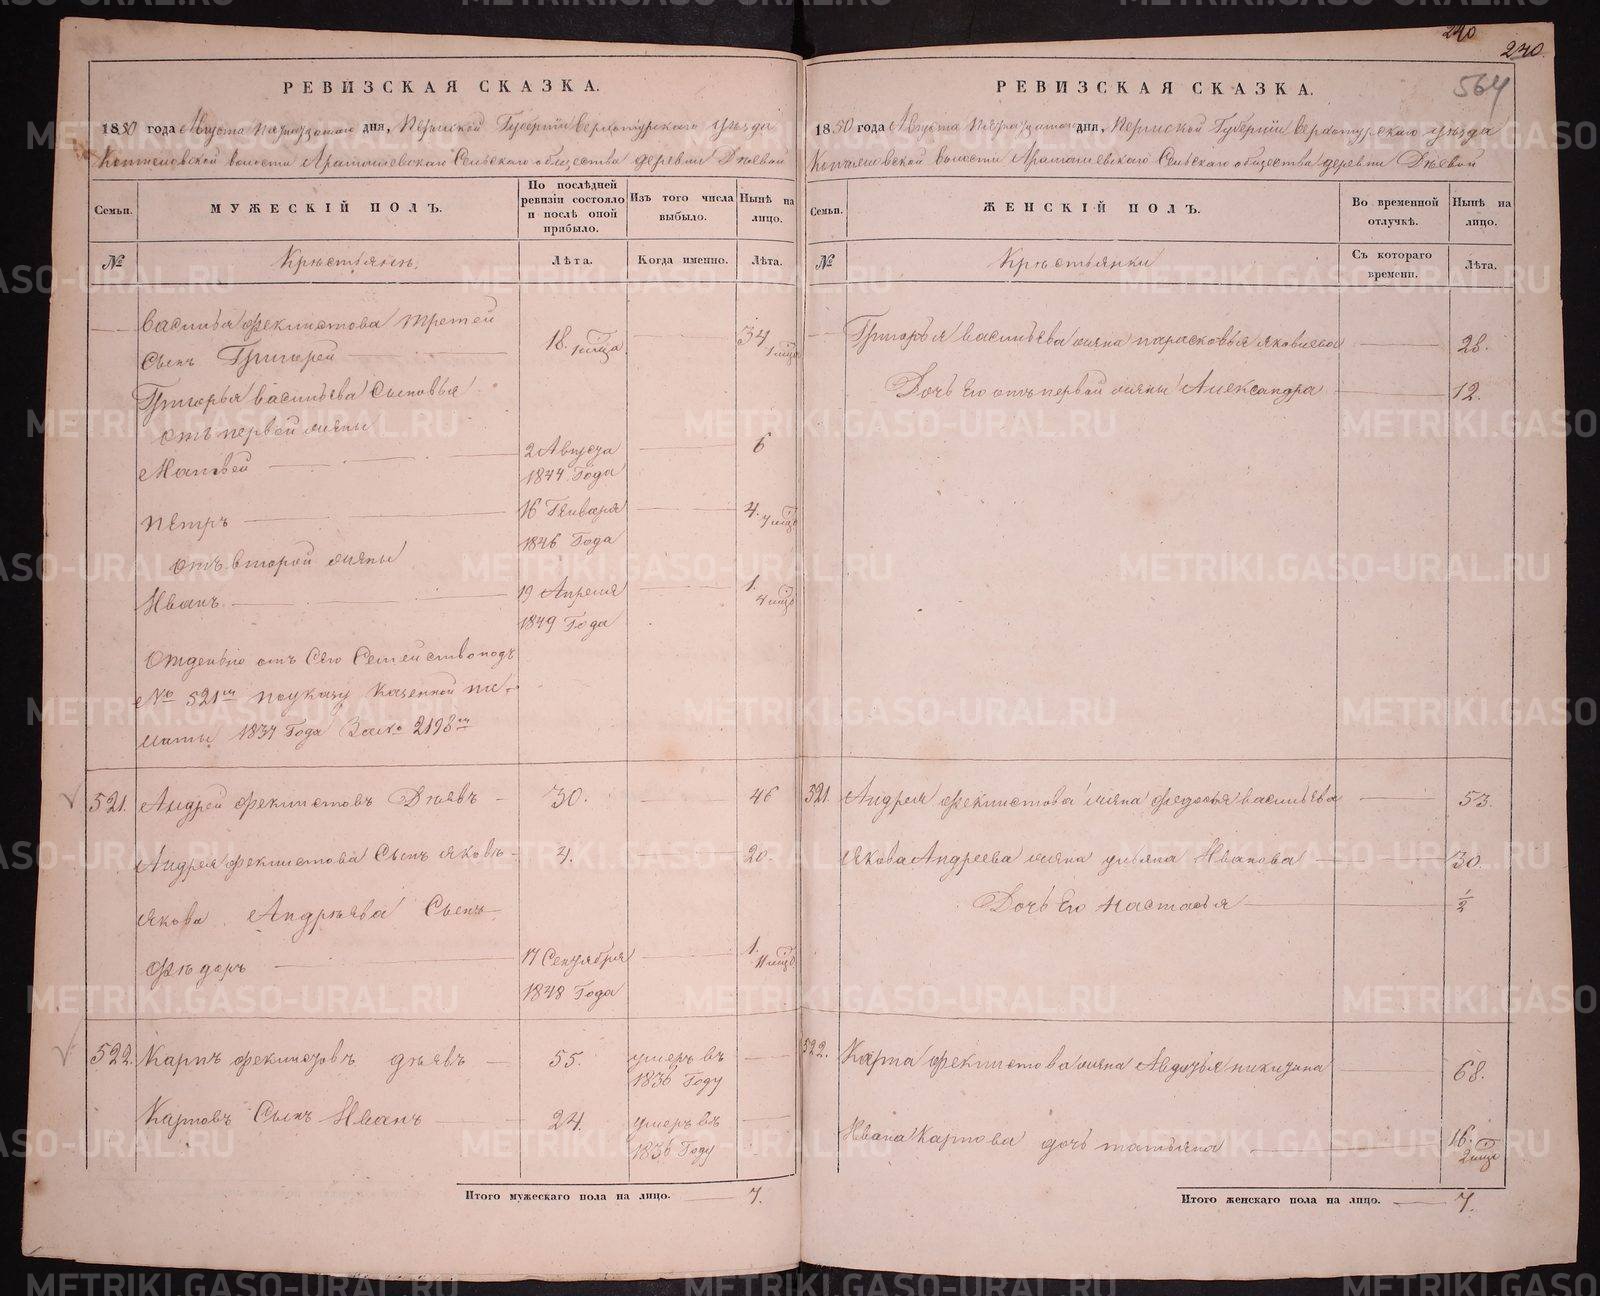 240
240.
564
РЕВИЗСКАЯ СКАЗКА.
1850 года Августа Пятнадцатаго дня, Пермской Губерніи Верхотурскаго уѣзда
волости Арамашевскаго Сельскаго общества деревни Дѣевой
Семьи.
МУЖЕСКІЙ ПОЛЪ.
По послѣдней ревизіи состояло и послѣ оной прибыло.
Изъ того числа выбыло.
Нынѣ на лицо.
№
Крестьянъ
Лѣта.
Когда именно.
Лѣта.
Василья Феклистова третей
Сынъ Григорей 18. 34
Григорья Васильева Сыновья
отъ первой жены
Матвей 2 Августа 1844 Года 6
Петръ 16 Генваря 1846 Года 4.
отъ второй жены
Иванъ 19 Апреля 1849 Года 1.
отъ Сего Семейство подъ
№ 521м по указу Казенной па-
латы 1837 Года
521. Андрей Феклистовъ Дѣевъ 30. 46
Андрея Феклистова Сынъ Яковъ 4. 20.
Якова Андреева Сынъ
Федоръ 17 Сентября 1848 Года 1.
522. Карпъ Феклистовъ Дѣевъ 55. умеръ въ 1836 Году
Карповъ Сынъ Иванъ 24. умеръ въ 1836 Году
Итого мужескаго пола на лицо. 7.
РЕВИЗСКАЯ СКАЗКА.
1850 года Августа Пятнадцатаго дня, Пермской Губерніи Верхотурскаго уѣзда
волости Арамашевскаго Сельскаго общества деревни Дѣевой
Семьи.
ЖЕНСКІЙ ПОЛЪ.
Во временной отлучкѣ.
Нынѣ на лицо.
№
Крестьянки
Съ котораго времени.
Лѣта.
Григорья Васильева жена Парасковья Яковлева 28.
Дочь Его отъ первой жены Александра 12.
521. Андрея Феклистова жена Федосья Васильева 53.
Якова Андреева жена Ульяна Иванова 30.
Дочь Его Настасья 1/2
522. Карпа Феклистова жена Авдотья Никитина 68.
Ивана Карпова дочь Татьяна 16.
Итого женскаго пола на лицо. 7.
METRIKI.GASO-URAL.RU